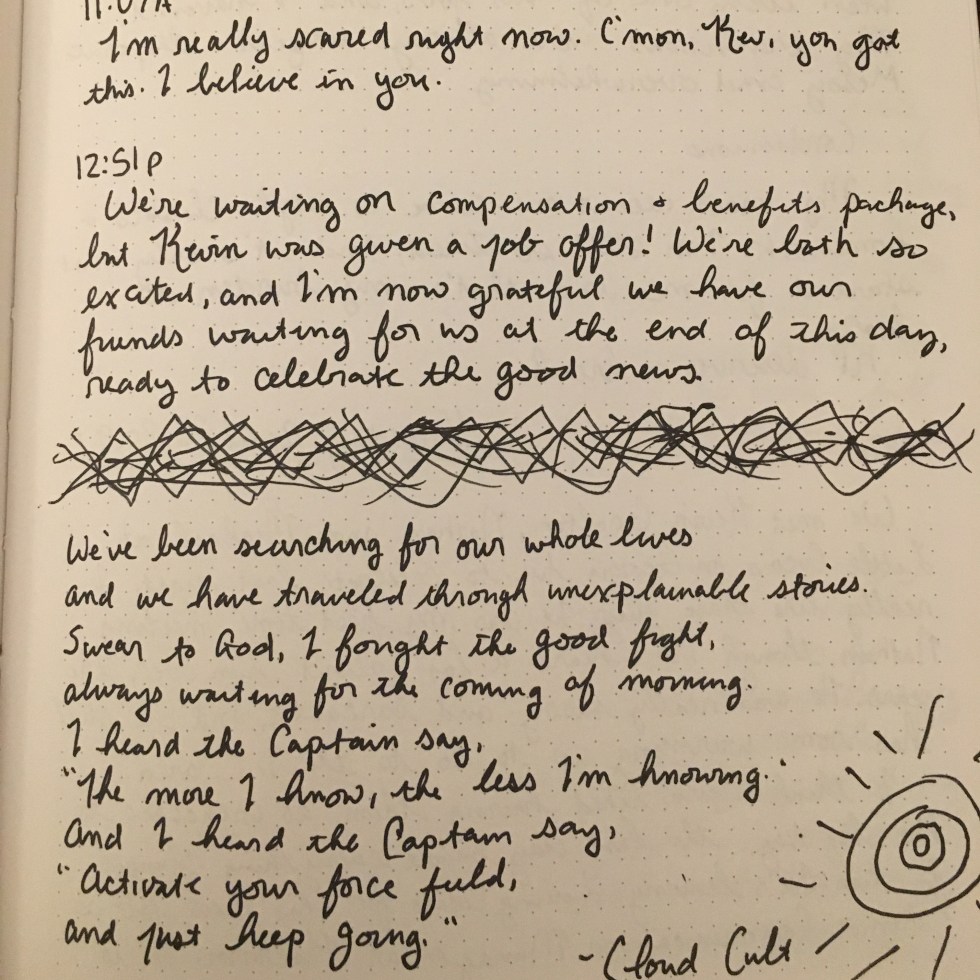 11:07A
I'm really scared right now. C'mon, Kev, you got
this. I believe in you.
12:51p
We're waiting on compensation & benefits package,
but Kevin was given a job offer! We're both so
excited, and I'm now grateful we have our
friends waiting for us at the end of this day,
ready to celebrate the good news.
We've been searching for our whole lives
and we have traveled through unexplainable stories.
Swear to God, I fought the good fight,
always waiting for the coming of morning.
I heard the Captain say,
"The more I know, the less I'm knowing."
And I heard the Captain say,
"Activate your force field,
and just keep going."
-Cloud Cult